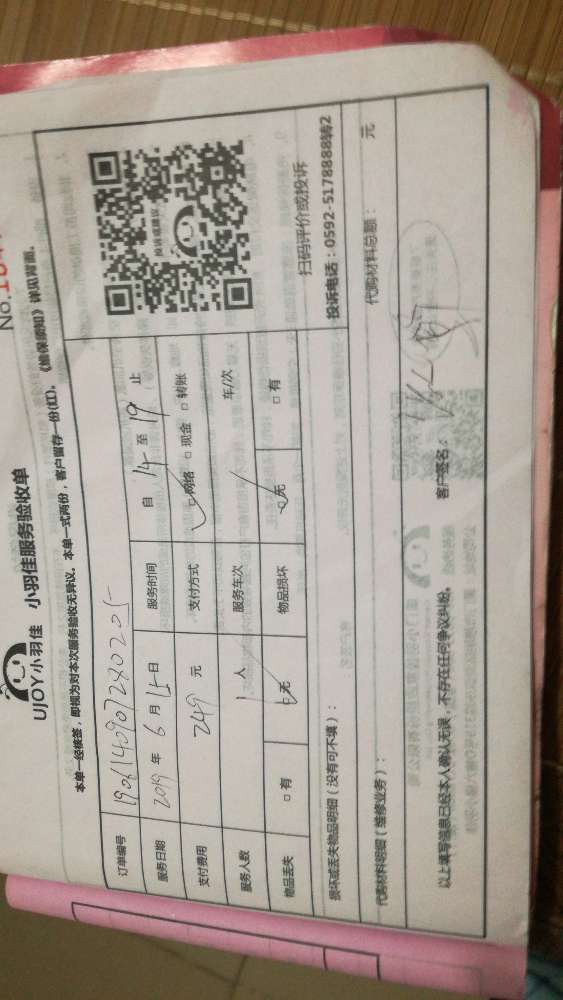 No.
UJOY小羽佳 小羽佳服务验收单
本单一经核签，即视为对本次服务验收无异议。本单一式两份，客户留存一份(红)。《愉保须知》详见背面。
订单编号 1906140907280205
服务日期 2019 年 6 月 15 日 服务时间 自 14 至 19 止
支付费用 249 元 支付方式 网络 现金 转账
服务人数 1 人 服务车次 车/次
物品丢失 有 无 物品损坏 无 有
投诉或建议
扫码评价或投诉
投诉电话：0592-5178888转2
损坏或丢失物品明细（没有可不填）：
代购材料明细（维修业务）： 代购材料总额： 元
以上填写信息已经本人确认无误，不存在任何争议纠纷。 客户签名：